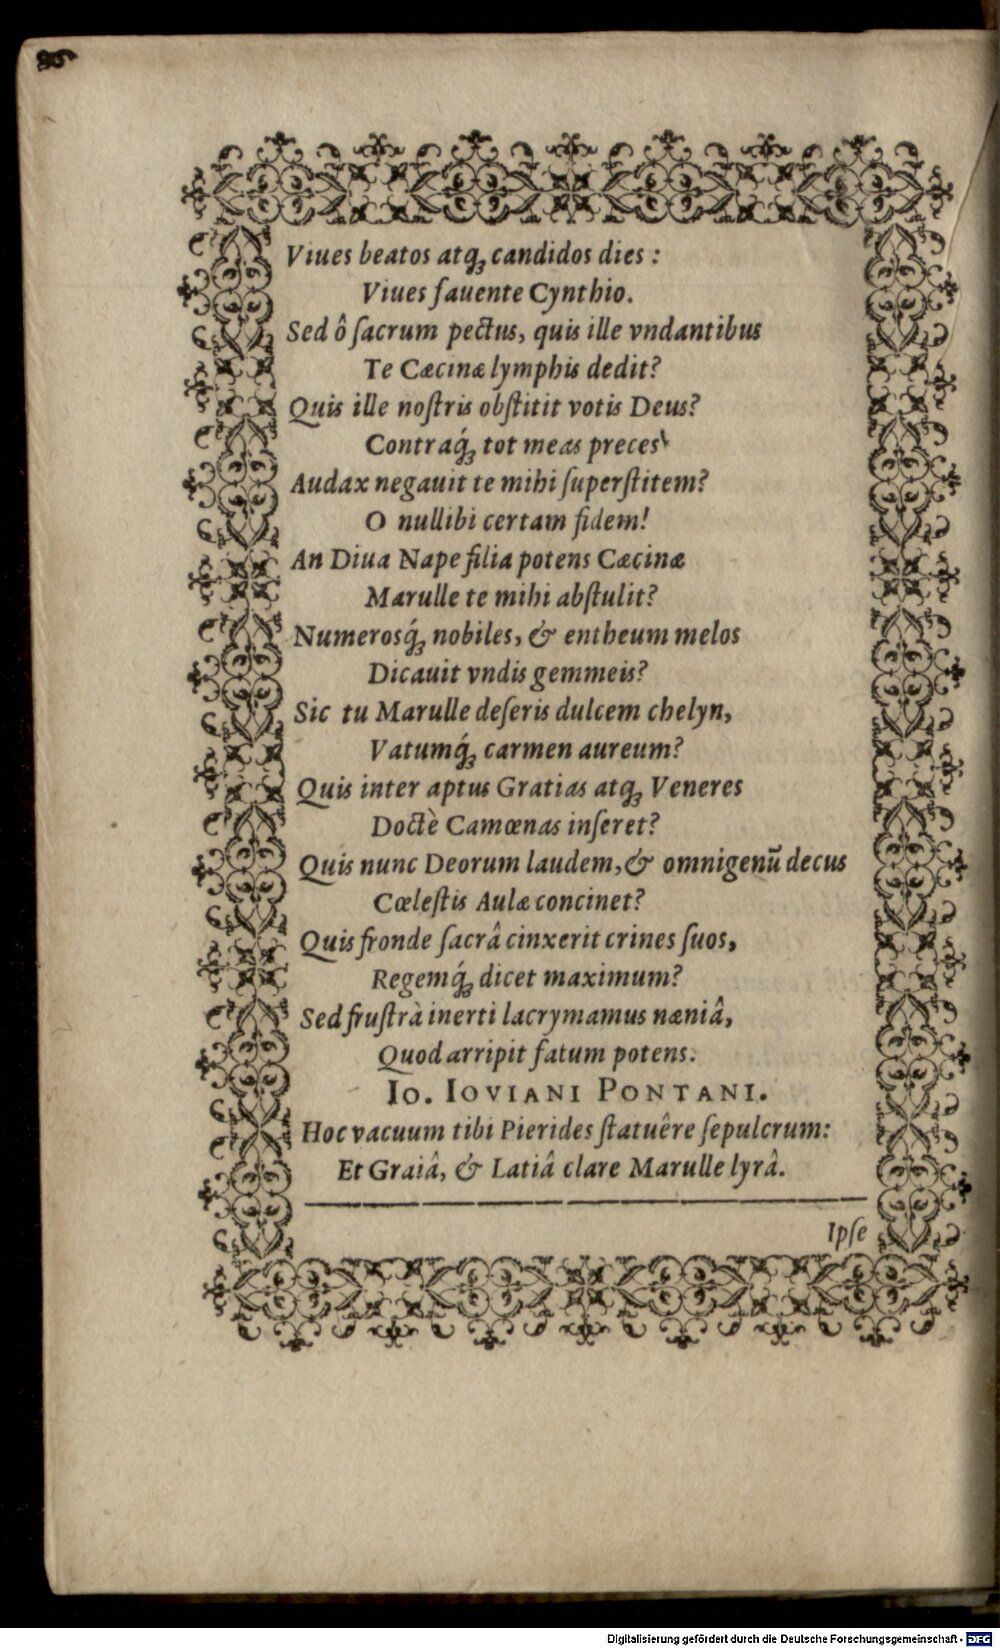 Viues beatos atq́; candidos dies :
Viues fauente Cynthio.
Sed ô ſacrum pectus, quis ille vndantibus
Te Cæcinæ lymphis dedit?
Quis ille noſtris obſtitit votis Deus?
Contraq́; tot meas preces
Audax negauit te mihi ſuperſtitem?
O nullibi certam fidem!
An Diua Nape filia potens Cæcinæ
Marulle te mihi abſtulit?
Numerosq́; nobiles, & entheum melos
Dicauit vndis gemmeis?
Sic tu Marulle deſeris dulcem chelyn,
Vatumq́; carmen aureum?
Quis inter aptus Gratias atq; Veneres
Doctè Camœnas inſeret?
Quis nunc Deorum laudem, & omnigenū decus
Cœleſtis Aulæ concinet?
Quis fronde ſacrâ cinxerit crines ſuos,
Regemq́; dicet maximum?
Sed fruſtrà inerti lacrymamus næniâ,
Quod arripit fatum potens.
IO. IOVIANI PONTANI.
Hoc vacuum tibi Pierides ſtatuêre ſepulcrum:
Et Graiâ, & Latiâ clare Marulle lyrâ.
Ipſe
Digitalisierung gefördert durch die Deutsche Forschungsgemeinschaft - DFG